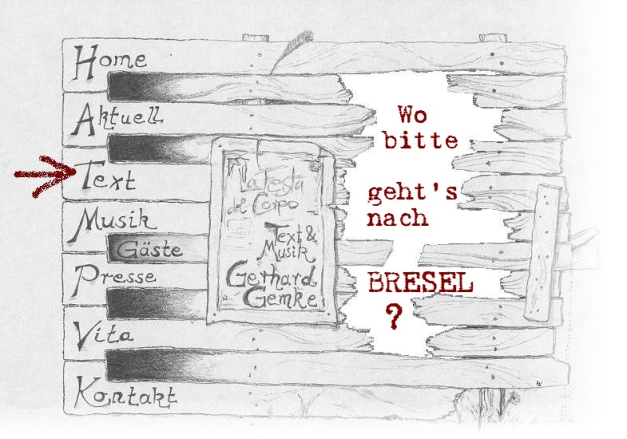 Home
Aktuell
Text
Musik
Gäste
Presse
Vita
Kontakt
La Festa
del Corpo
Text &
Musik
Gerhard
Gemke
Wo
bitte
geht's
nach
BRESEL
?